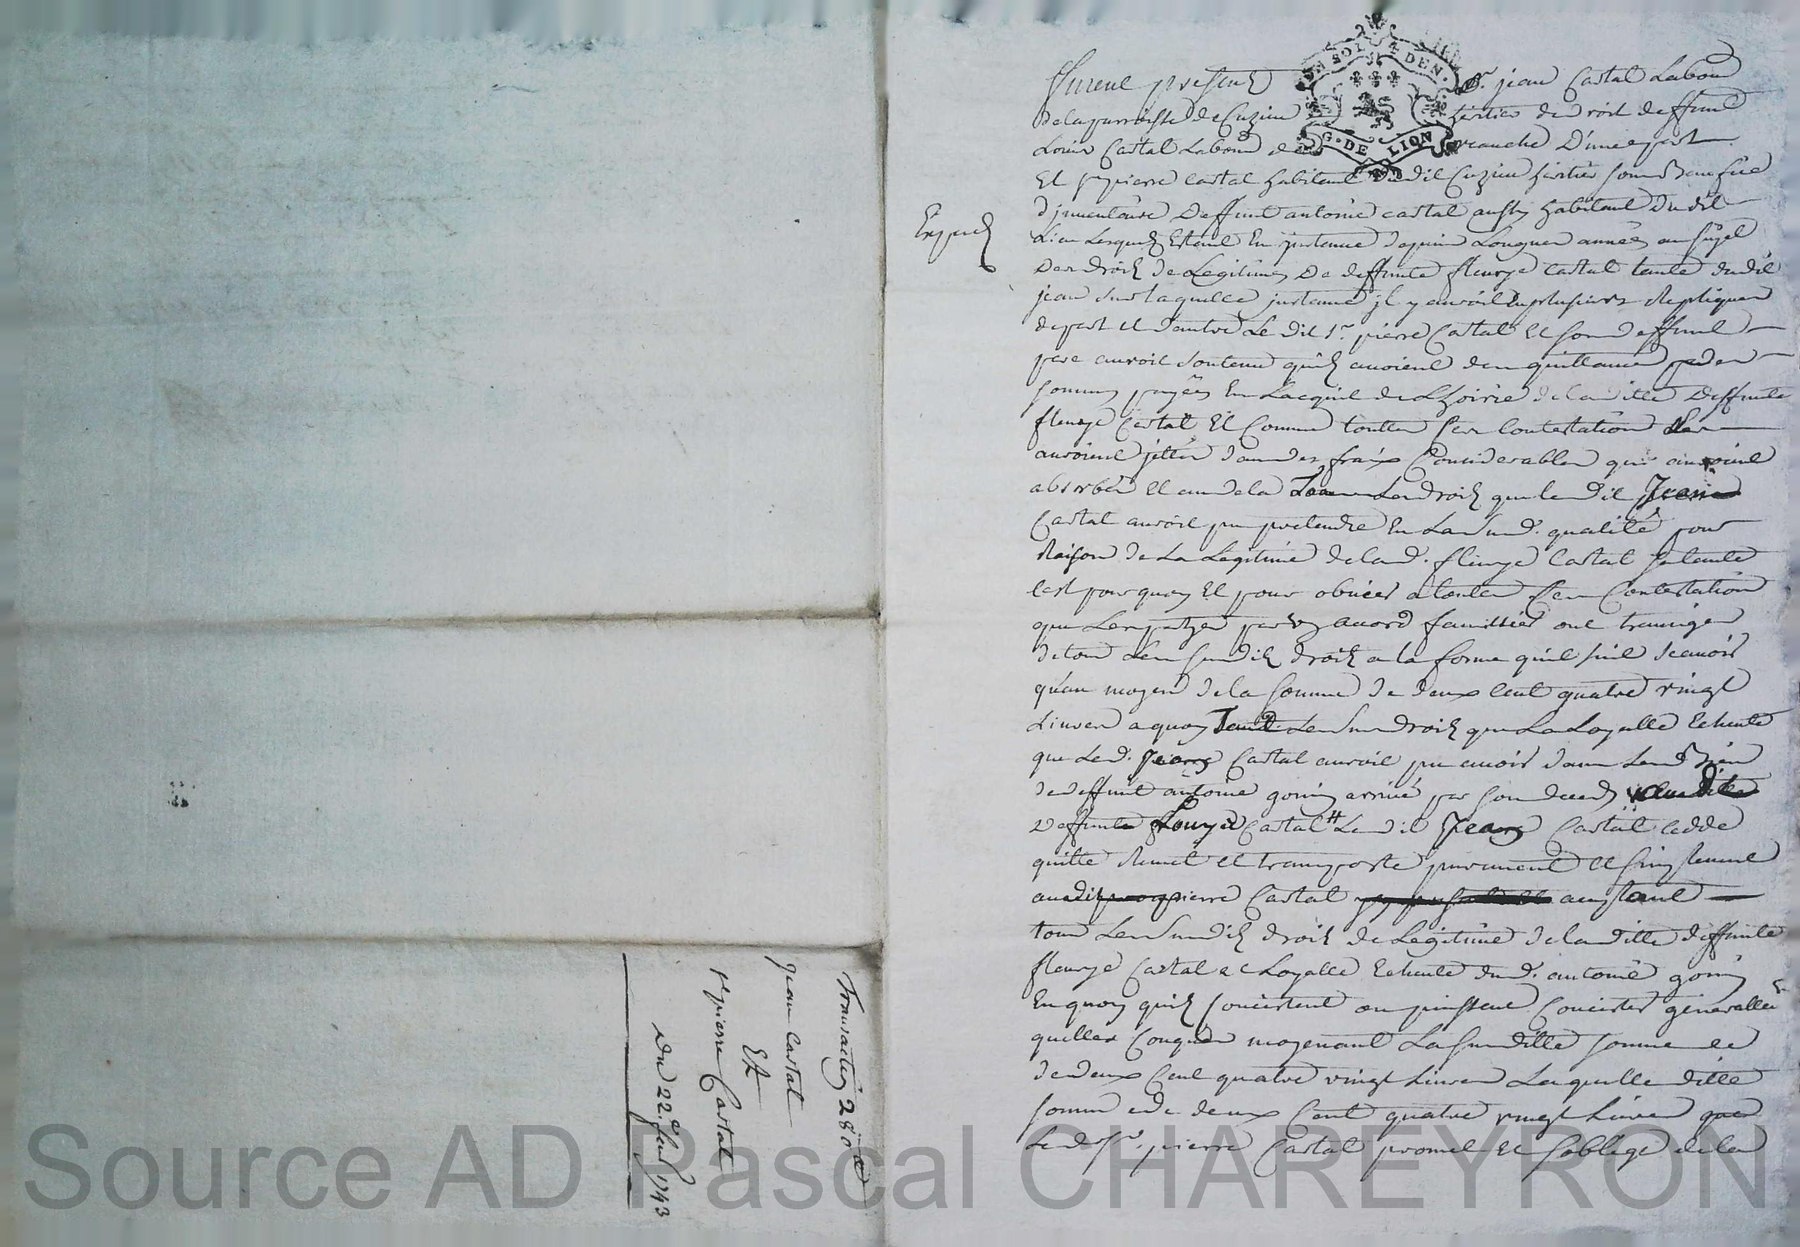 furent presents Sr. jean Castal Laboud
de la parroisse de Cuzieu heritier de droit de deffunt
Louis Castal Laboud d'une part
DEN.
G. DE LION
Et Sr pierre castal habitant dudit Cuzieu heritier sous Benefice
d'jnventaire deffunt antoine castal aussy habitant dudit
Lieu Lesquels Estant En jnstance depuis Longues années au sujet
Des droits de Legitimes De deffunte fleurye Castal tante dudit
jean sur laquelle jnstance jl y auroit Eu plusieurs Repliques
de part et d'autre Le dit Sr. pierre Castal Et son deffunt
pere auroit soutenu quils avoient des quittances de
sommes payées En Lacquit de Lhoirie de laditte Deffunte
fleurye Castal Et Comme touttes ses Contestations Les
auroient jettés dans des fraix Considerables qui auroient
absorbés Et au dela Tous Les droits que le dit Jean
Castal auroit pu pretendre En La susd. qualité pour
Raison de La Legitime de lad. fleurye Castal sa tante
Cest pourquoy Et pour obvier a toutes Ces Contestations
que Les partyes par un acord famillier ont transigés
de tous Les susdits droits a la forme quil suit scavoir
qu'au moyen de la somme de deux Cent quatre vingt
Livres a quoy Tant Les sus droits que La Loyalle Echeute
que Led. Jean Castal auroit pu avoir dans Les Biens
de deffunt antoine goin arrivé par son deceds
Deffunte fleurye Castal Le dit Jean Castal Cedde
quitte Remet et transporte purement Et simplement
audit pierre Castal acceptant
tous Les susdits droits de Legitime de laditte deffunte
fleurye Castal et Loyalle Echeute dud. antoine goin
En quoy quils Concistent ou puissent Concister generalle
quelles Conques moyenant La susditte somme de
de deux Cent quatre vingt Livres Laquelle ditte
somme de deux Cent quatre vingt Livres que
Led. Sr. pierre Castal promet Et soblige de la
Transaction 280 #
Jean Castal
Et
Sr pierre Castal
Du 22e 1743
Source AD Pascal CHAREYRON